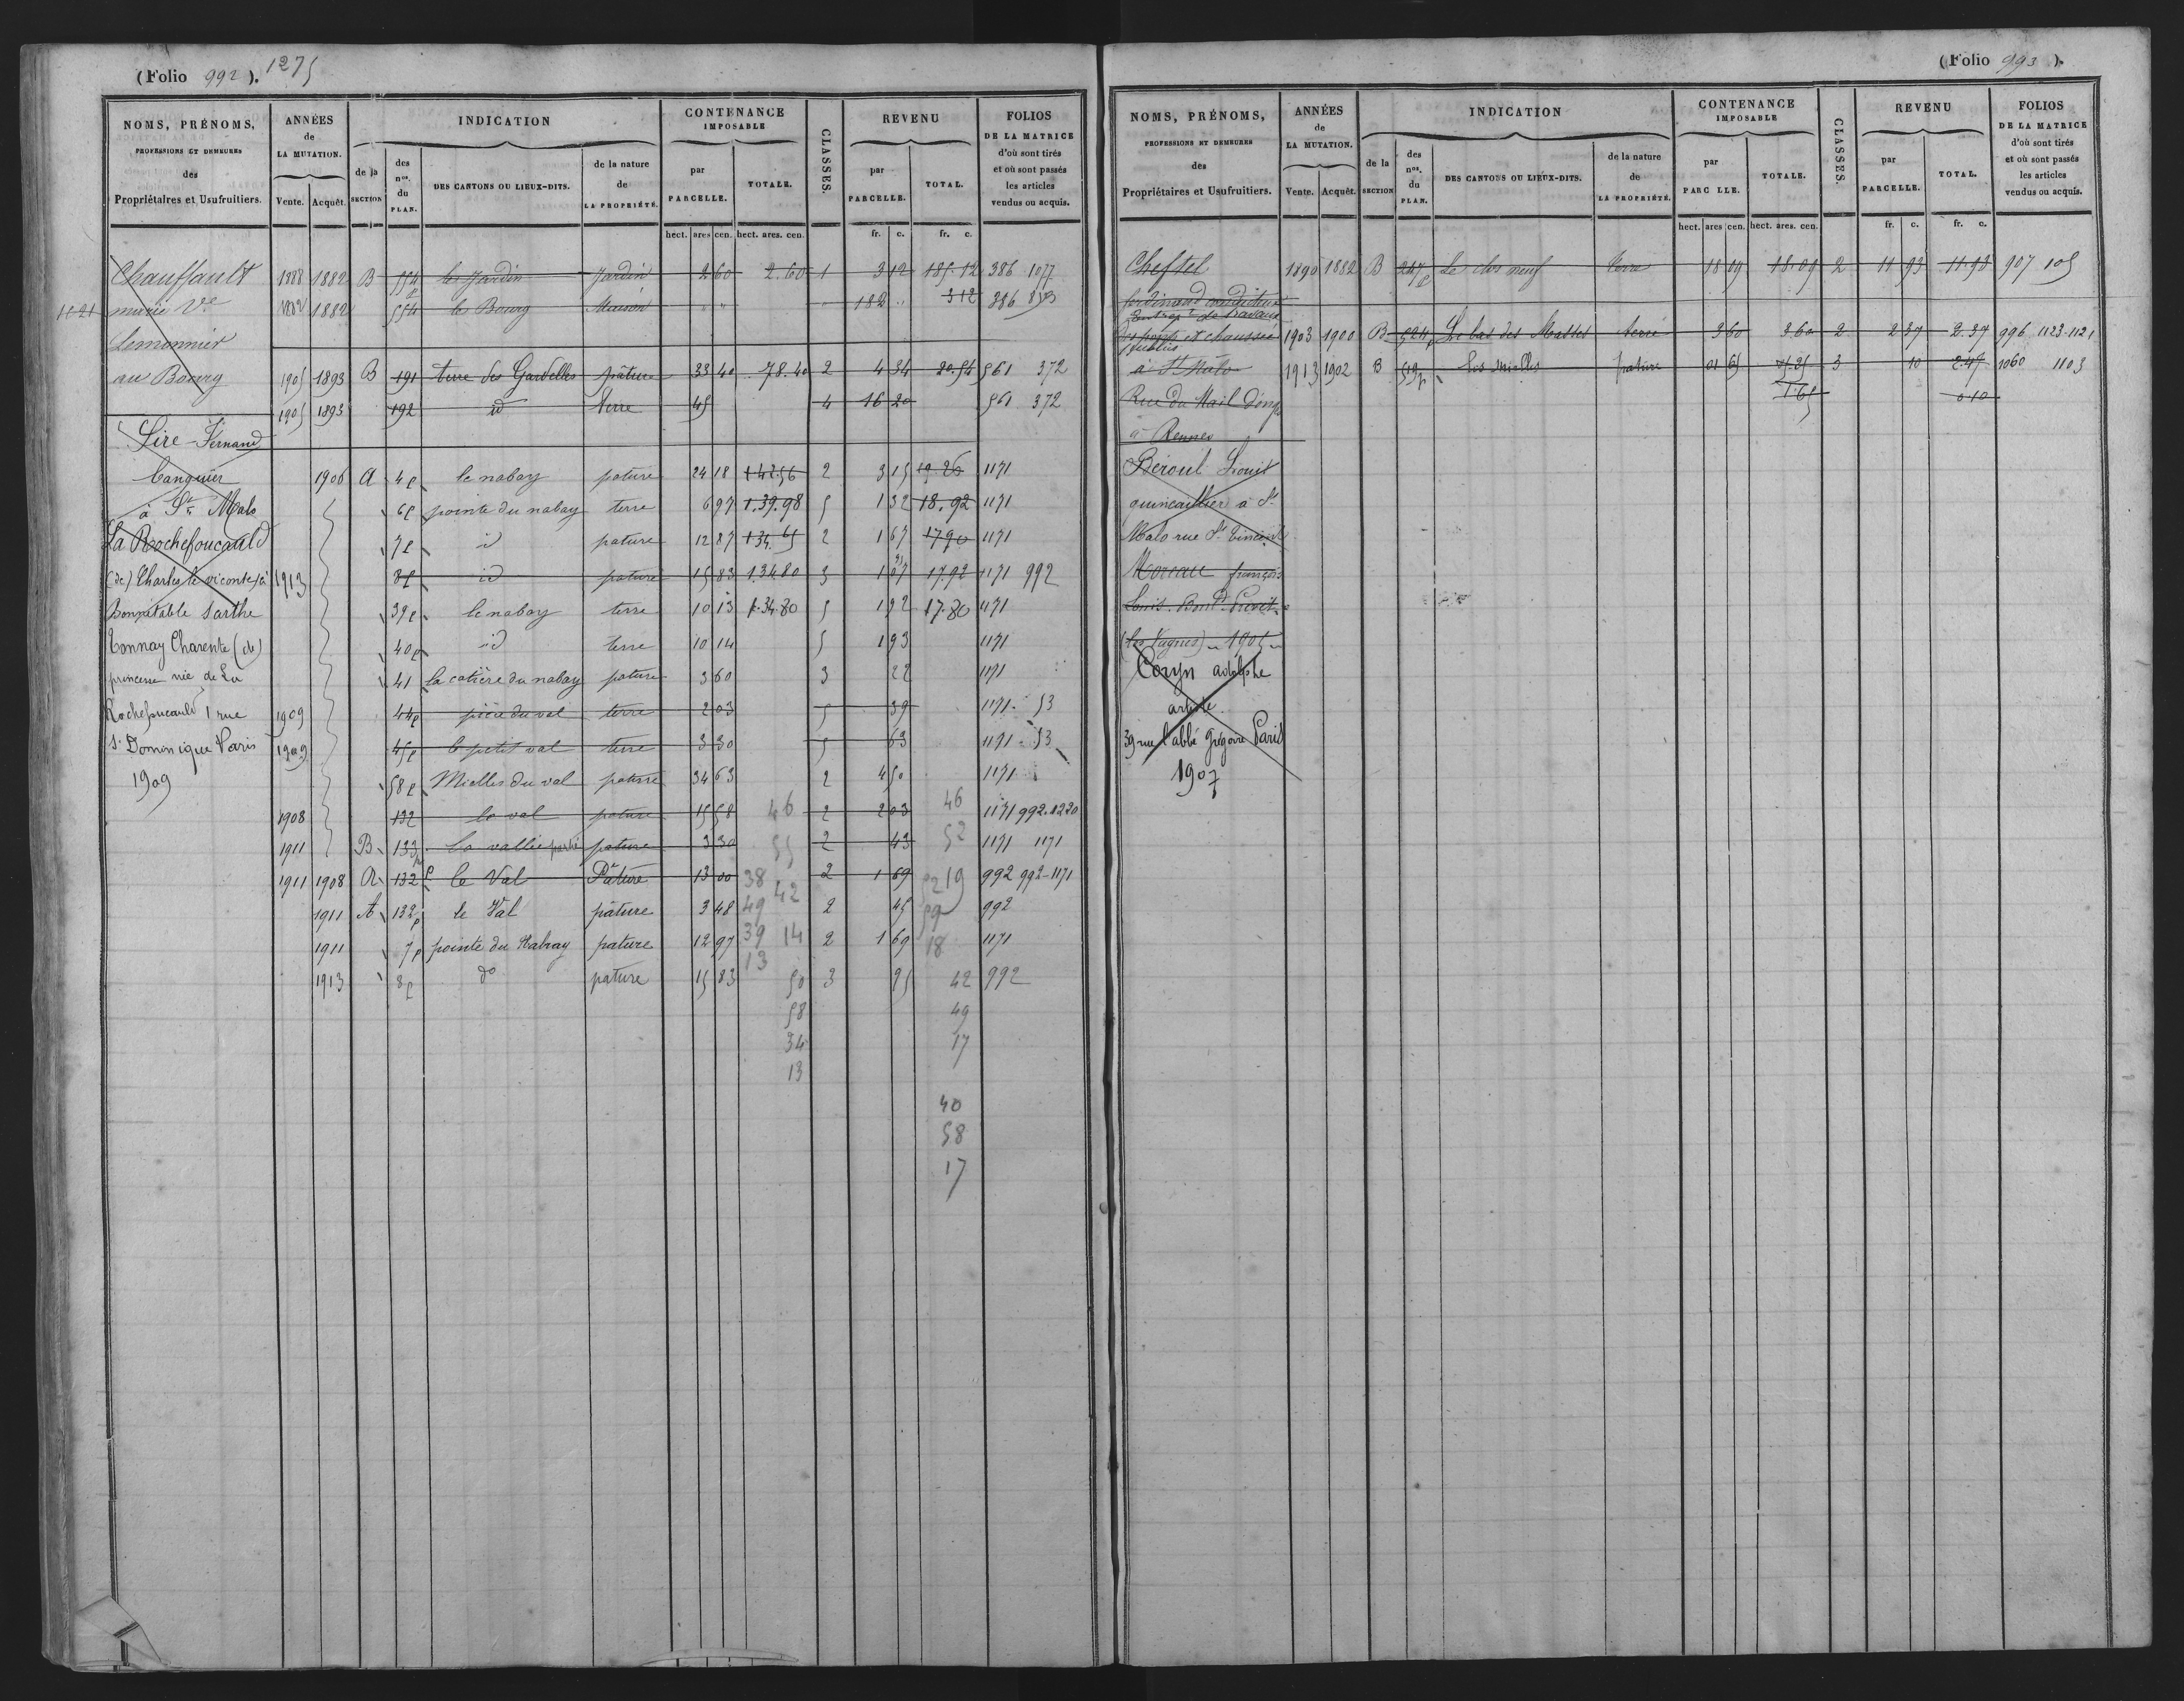 (Folio 992). 1275
NOMS, PRÉNOMS,
PROFESSIONS ET DEMEURES
des
Propriétaires et Usufruitiers.
ANNÉES
de
LA MUTATION.
Vente. Acquêt.
INDICATION
de la
SECTION
des
nos.
du
PLAN.
DES CANTONS OU LIEUX-DITS.
de la nature
de
LA PROPRIÉTÉ.
CONTENANCE
IMPOSABLE
par
PARCELLE.
TOTALE.
hect. ares cen. hect. ares. cen.
CLASSES.
REVENU
par
PARCELLE.
TOTAL.
fr. c. fr. c.
FOLIOS
DE LA MATRICE
d'où sont tirés
et où sont passés
les articles
vendus ou acquis.
Chauffault 1888 1882 B 554 p le Jardin Jardin 2 60 2.60 1 3 12 185.12 386 1077
1121 marie Ve 1882 554 le Bourg Maison " " " 182 " 3 12 386
Lemonnier
au Bourg 1905 1893 B 191 terre des Gardelles pâture 33 40 78.40 2 4 34 20.54 561 372
1905 1893 192 id terre 45 4 16 20 561 372
Lire Fernand
banquier 1906 A 4p le nabay pature 24 18 1.42.56 2 3 15 19.26 1171
à St Malo 6p pointe du nabay terre 6 97 1.39.98 5 1 32 18.92 1171
La Rochefoucauld 7p id pature 12 87 1.34.65 2 1 67 17.90 1171
(de) Charles le vicomte à 1913 8p id pature 15 83 1.34.80 3 1 07 17.92 1171 992
Bonnétable Sarthe 39p le nabay terre 10 13 1.34.80 5 1 92 17.80 1171
Tonnay Charente (de) 40p id terre 10 14 5 1 93 1171
princesse née de La 41 la cotière du nabay pature 3 60 3 22 1171
Rochefoucauld 1 rue 1909 44p pièce du val terre 2 03 5 39 1171 - 53
St Dominique Paris 1909 45p le petit val terre 3 30 5 63 1171 - 53
1909 58p Mielles du val pature 34 63 2 4 50 1171
1908 132 le val pature 15 58 46 2 2 03 46 1171 992.1220
1911 B 133p La vallée partie pature 3 30 55 2 43 52 1171 1171
1911 1908 A 132 p le Val Pâture 13 00 38 2 1 69 52 19 992 992-1171
1911 A 132p le Val pâture 3 48 49 42 2 45 59 992
1911 7p pointe du Nabay pature 12 97 39 14 2 1 69 18 1171
13
1913 8p do pature 15 83 50 3 95 42 992
58 49
34 17
13
40
58
17
(Folio 993).
NOMS, PRÉNOMS,
PROFESSIONS ET DEMEURES
des
Propriétaires et Usufruitiers.
ANNÉES
de
LA MUTATION.
Vente. Acquêt.
INDICATION
de la
SECTION
des
nos.
du
PLAN.
DES CANTONS OU LIEUX-DITS.
de la nature
de
LA PROPRIÉTÉ.
CONTENANCE
IMPOSABLE
par
PARC LLE.
TOTALE.
hect. ares cen. hect. ares. cen.
CLASSES.
REVENU
par
PARCELLE.
TOTAL.
fr. c. fr. c.
FOLIOS
DE LA MATRICE
d'où sont tirés
et où sont passés
les articles
vendus ou acquis.
Cheftel 1890 1882 B 247p Le clos neuf terre 18 09 18.09 2 11 93 11.93 907 105
ferdinand conducteur
Entrepr de travaux
des ponts et chaussée 1903 1900 B 524p Le bas des Masses terre 3 60 3 60 2 2 37 2.37 996 1123-1121
publics
à St Malo 1913 1902 B 519p les mielles pature 01 65 5.25 3 10 2.47 1060 1103
Rue du Mail d'onges 1.65 0.10
à Rennes
Béroul Louis
quincaillier à St
Malo rue St Vincent
Moreau françois
Louis
1905
Coryn adolphe
artiste.
39 rue l'abbé Grégoire Paris
1907